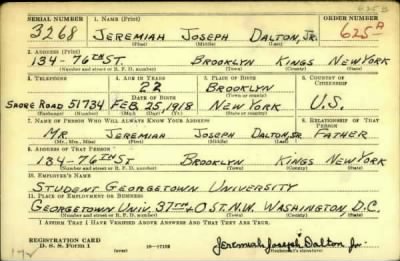 SERIAL NUMBER 1. NAME (Print) ORDER NUMBER
3268 JEREMIAH JOSEPH DALTON, JR. 625A
(First) (Middle) (Last)
2. ADDRESS (Print)
134-76TH ST BROOKLYN KINGS NEW YORK
(Number and street or R. F. D. number) (Town) (County) (State)
3. TELEPHONE 4. AGE IN YEARS 5. PLACE OF BIRTH 6. COUNTRY OF CITIZENSHIP
22 BROOKLYN
DATE OF BIRTH (Town or county)
SHORE ROAD 51734 FEB. 25, 1918 NEW YORK U.S.
(Exchange) (Number) (Mo.) (Day) (Yr.) (State or country)
7. NAME OF PERSON WHO WILL ALWAYS KNOW YOUR ADDRESS 8. RELATIONSHIP OF THAT PERSON
MR. JEREMIAH JOSEPH DALTON, SR. FATHER
(Mr., Mrs., Miss) (First) (Middle) (Last)
9. ADDRESS OF THAT PERSON
134-76TH ST BROOKLYN KINGS NEW YORK
(Number and street or R. F. D. number) (Town) (County) (State)
10. EMPLOYER'S NAME
STUDENT GEORGETOWN UNIVERSITY
11. PLACE OF EMPLOYMENT OR BUSINESS
GEORGETOWN UNIV. 37TH & O ST. N.W. WASHINGTON, D.C.
(Number and street or R. F. D. number) (Town) (County) (State)
I AFFIRM THAT I HAVE VERIFIED ABOVE ANSWERS AND THAT THEY ARE TRUE.
REGISTRATION CARD
D. S. S. Form 1 (over) 16-17105 Jeremiah Joseph Dalton, Jr.